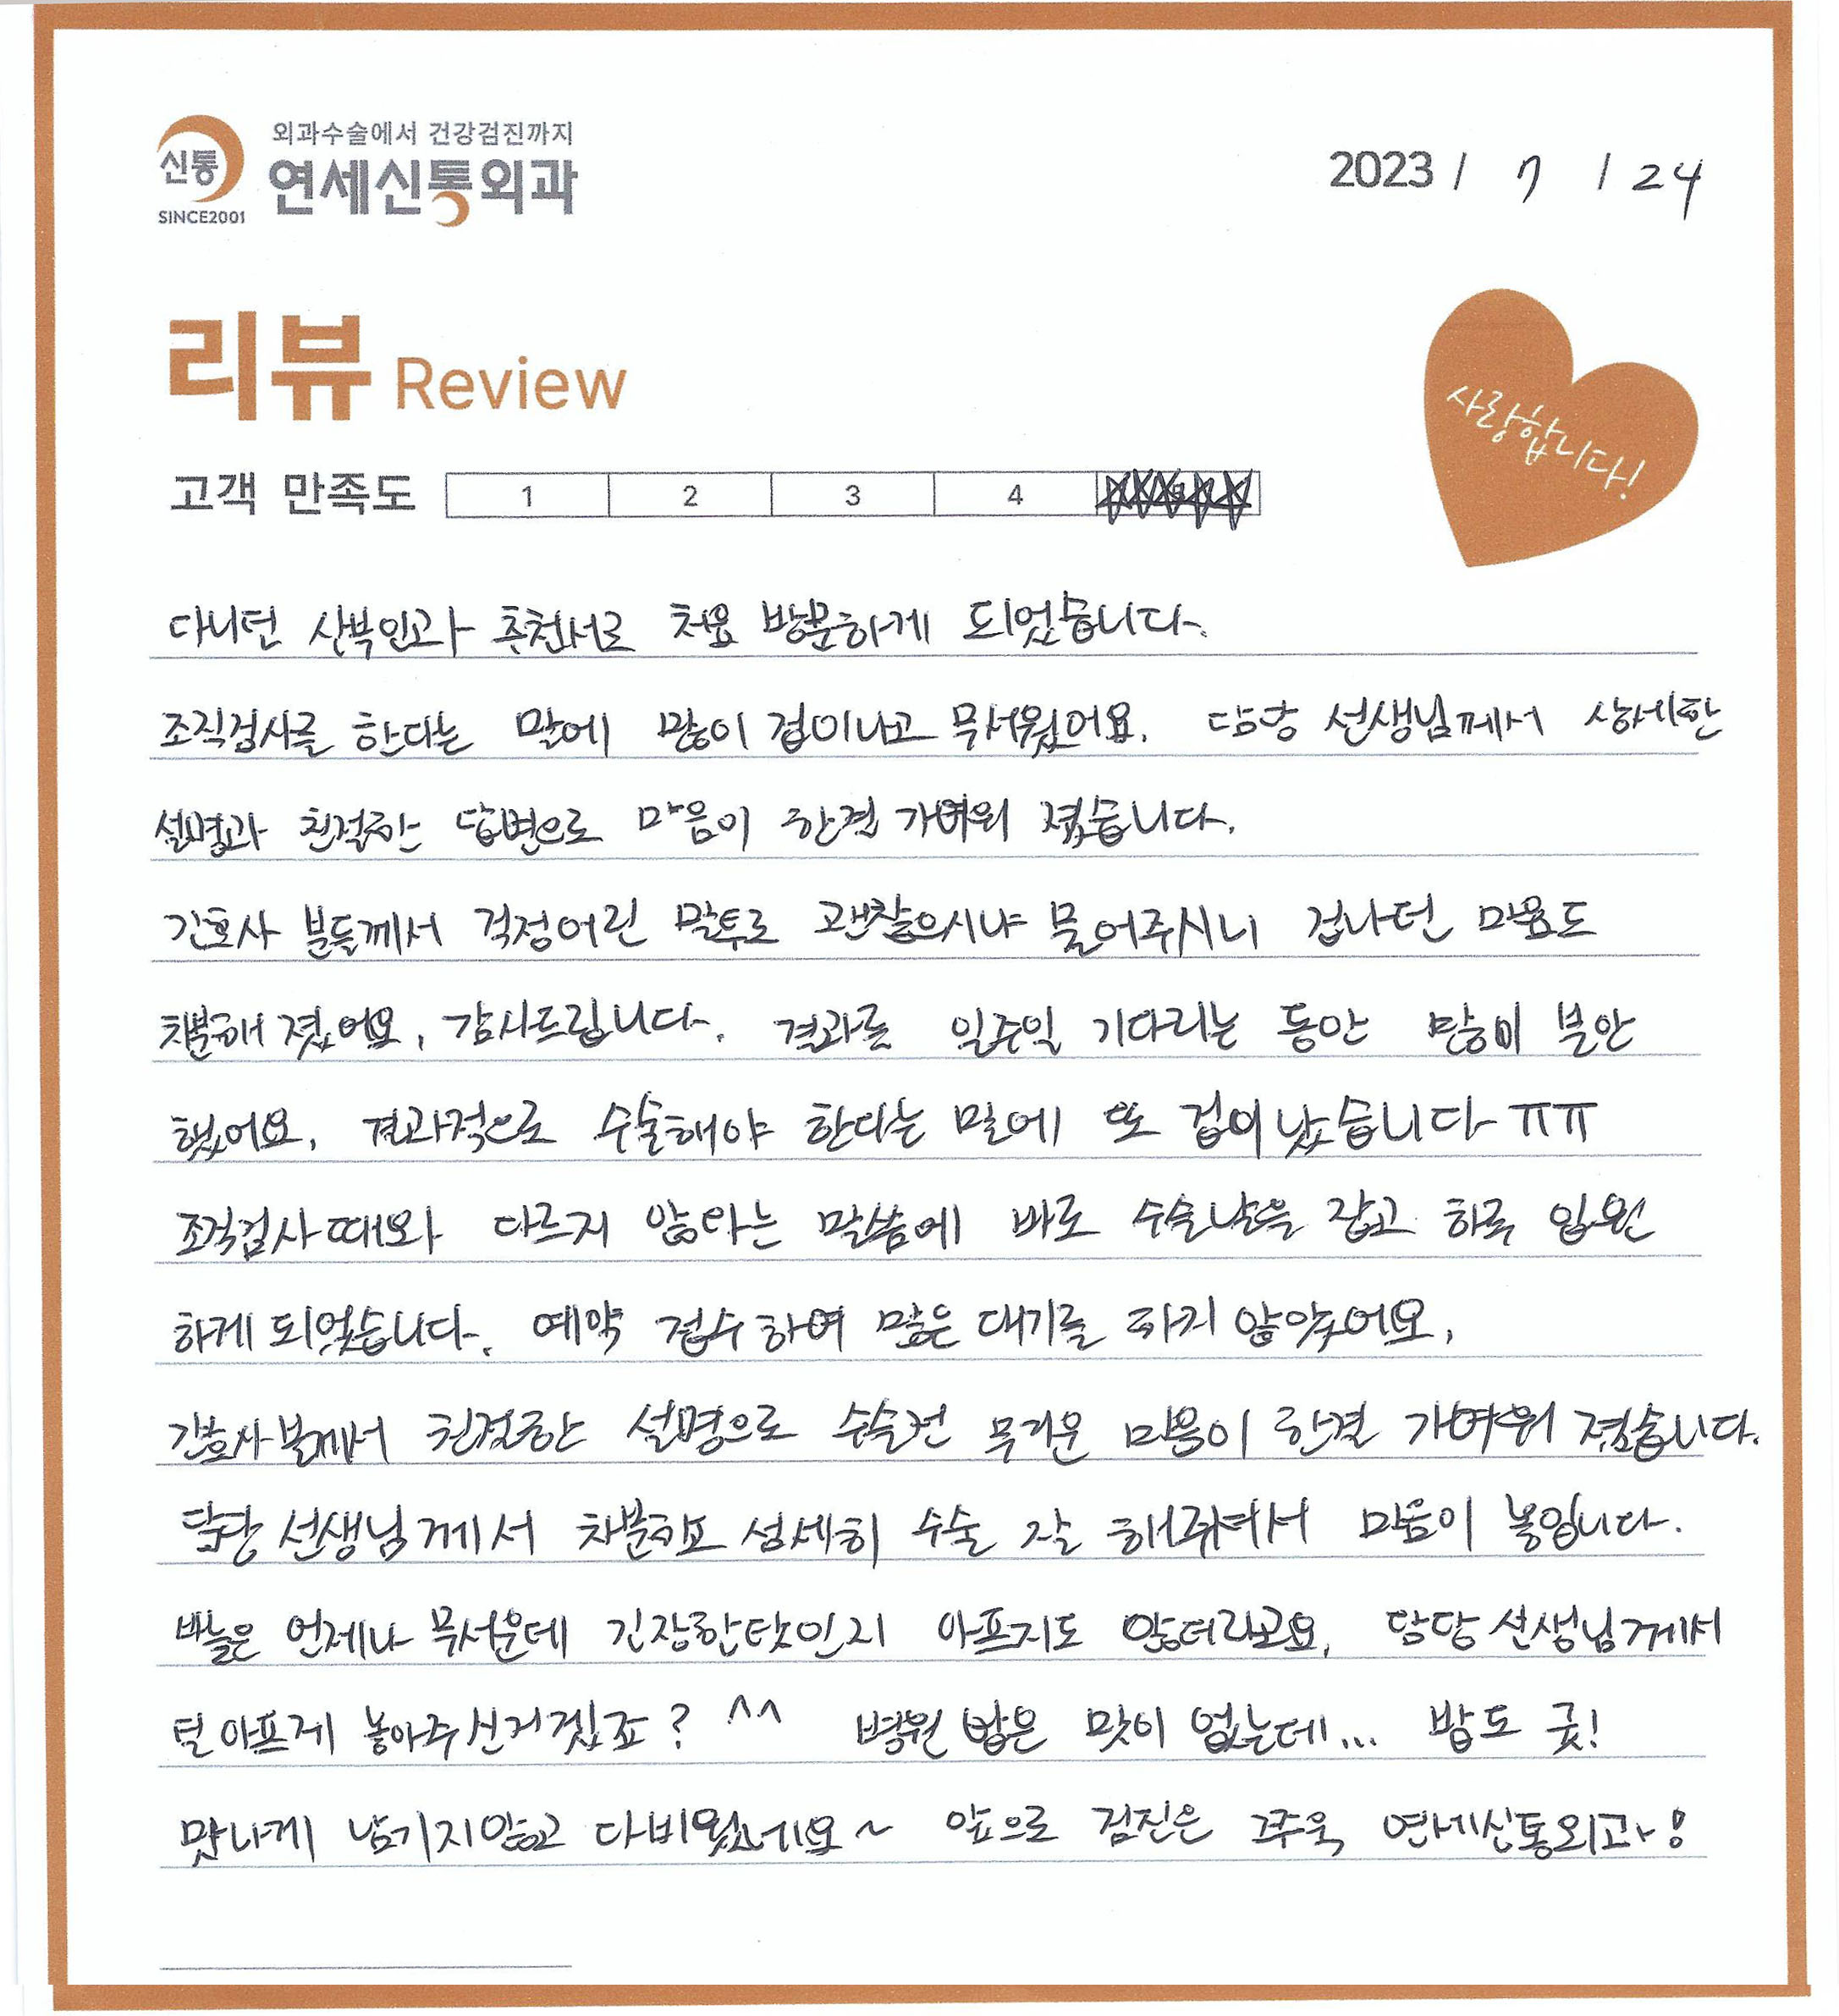 신통
SINCE2001
외과수술에서 건강검진까지
연세신통외과
2023 / 7 / 24
리뷰 Review
사랑합니다!
고객 만족도 1 2 3 4
다니던 산부인과 추천서로 처음 방문하게 되었습니다.
조직검사를 한다는 말에 많이 겁이나고 무서웠어요. 담당 선생님께서 상세한
설명과 친절한 답변으로 마음이 한결 가벼워 졌습니다.
간호사 분들께서 걱정어린 말투로 괜찮으시냐 물어주시니 겁나던 마음도
차분해 졌어요. 감사드립니다. 결과를 일주일 기다리는 동안 많이 불안
했어요. 결과적으로 수술해야 한다는 말에 또 겁이 났습니다 ㅠㅠ
조직검사때와 다르지 않다는 말씀에 바로 수술날을 잡고 하루 입원
하게 되었습니다. 예약 접수하여 많은 대기를 하지 않았어요.
간호사분께서 친절한 설명으로 수술전 무거운 마음이 한결 가벼워 졌습니다.
담당 선생님께서 차분하고 섬세히 수술 잘 해주셔서 마음이 놓입니다.
바늘은 언제나 무서운데 긴장한탓인지 아프지도 않더라고요. 담당 선생님께서
덜 아프게 놓아주신거겠죠? ^^ 병원 밥은 맛이 없는데... 밥도 굿!
맛나게 남기지않고 다비웠네요~ 앞으로 검진은 쭈욱 연세신통외과!